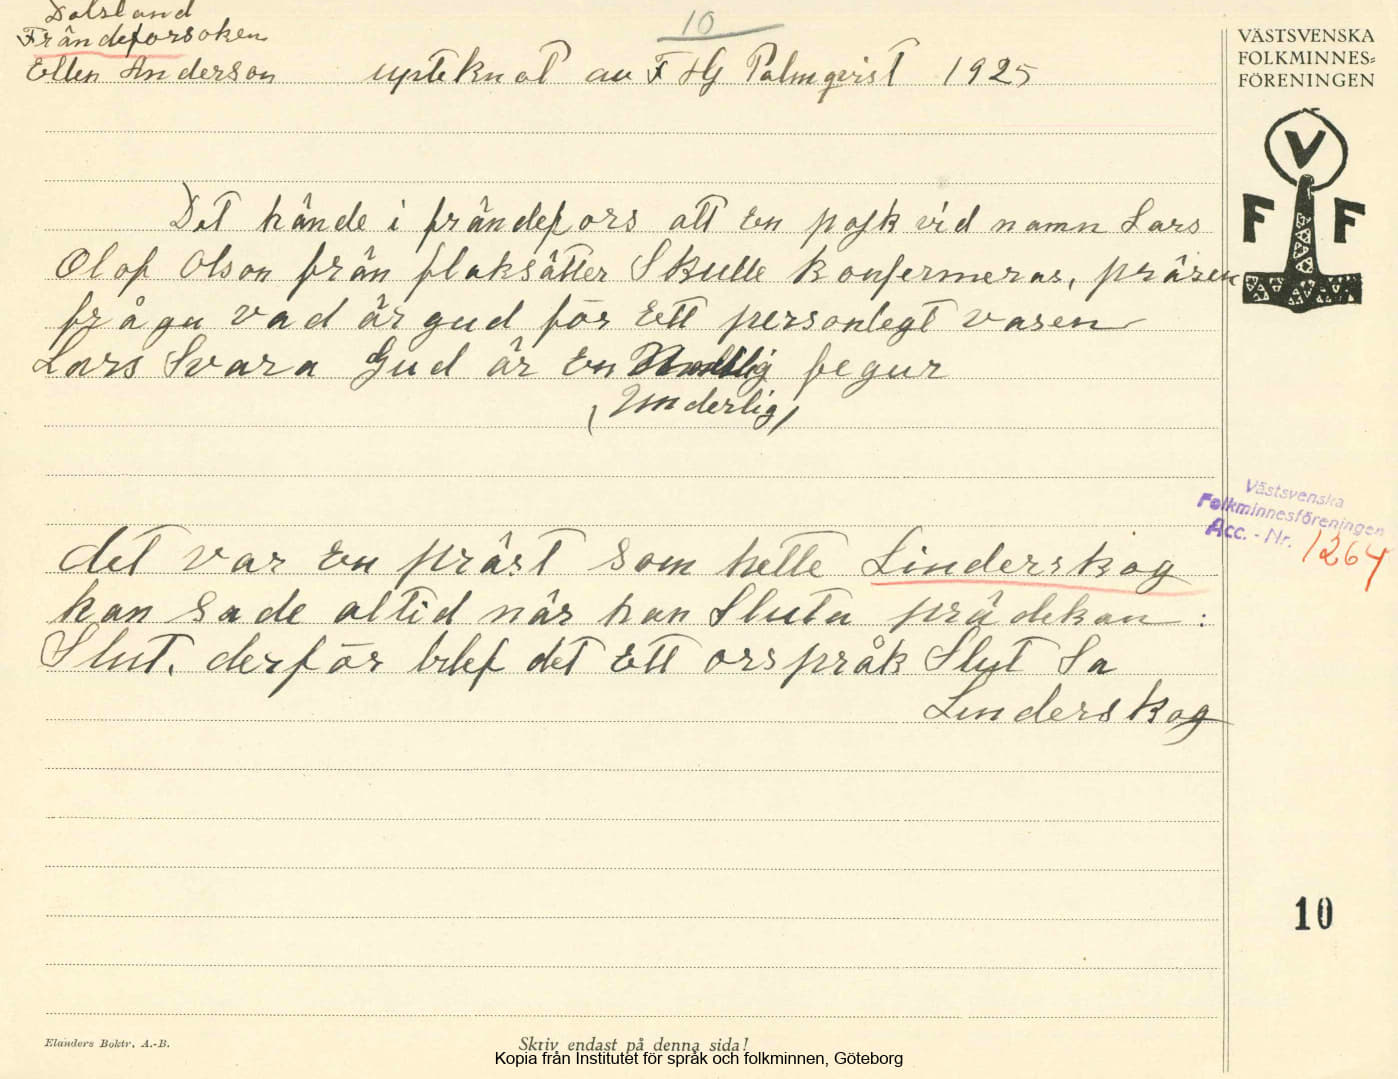 Dalsland
Frändeforsoken
Ellen Anderson upteknat av F HG Palmqvist 1925
10
VÄSTSVENSKA
FOLKMINNES=
FÖRENINGEN
V
F F
Det hände i frändefors att En pojk vid namn Lars
Olof Olson från flaksätter Skulle Konfermeras, präsen
frågu vad är gud för Ett personlegt vasen
Lars Svara Gud är En fegur
(Underlig)
Västsvenska
Folkminnesföreningen
Acc. - Nr. 1264
det var En präst som hette Linderskog
han sade altid när han Sluta prädekan :
Slut. derför blef det Ett orspråk Slut Sa
Linderskog
10
Elanders Boktr. A.-B.
Skriv endast på denna sida!
Kopia från Institutet för språk och folkminnen, Göteborg